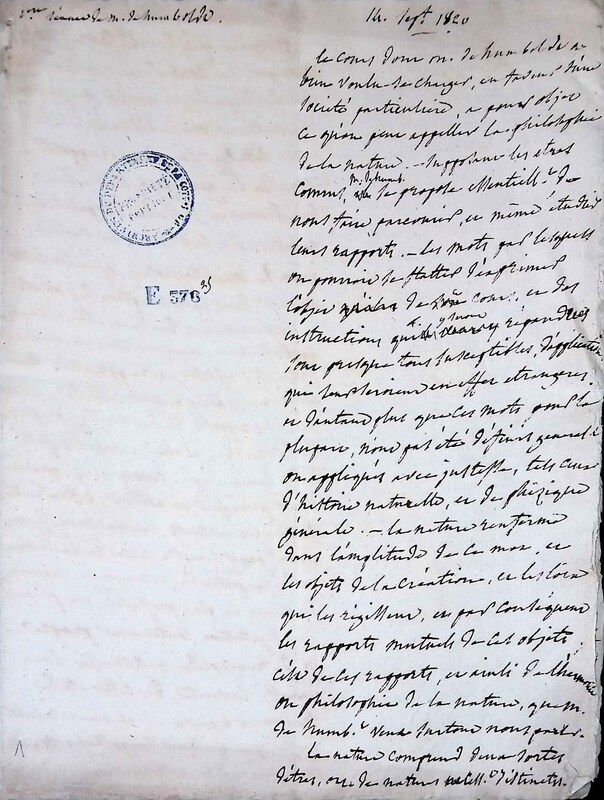 1ere séance de m. de humboldt.
14. Sept. 1820
le cours dont m. de humboldt a
bien voulu se charger, en faveur d'une
société particulière, a pour objet
ce qu'on peut appeller la philosophie
de la nature. — Supposant les êtres
connus, m. de humb. se propose essentiell.t de
nous faire parcourir, et même étudier
leurs rapports. — Les mots par lesquels
on pourroit se flatter d'exprimer
l'objet de cours, et des
instructions qu'il y répandre
sont presque tous susceptibles, d'application
qui lui seroient en effet etrangères.
et d'autant plus que ces mots pour la
plupart, n'ont pas été définis general.t
ou appliqués avec justesse, tels ceux
d'histoire naturelle, et de phizique
générale. — la nature renferme
dans l'amplitude de ce mot, et
les objets de la création, et les loix
qui les régissent, et par conséquent
les rapports mutuels de ces objets.
c'est de ces rapports, et ainsi de l'harmonie
ou philosophie de la nature, que m.
de humb.t veut surtout nous parler.
la nature comprend deux sortes
d'êtres, ou de natures distinctes.
E 578 35